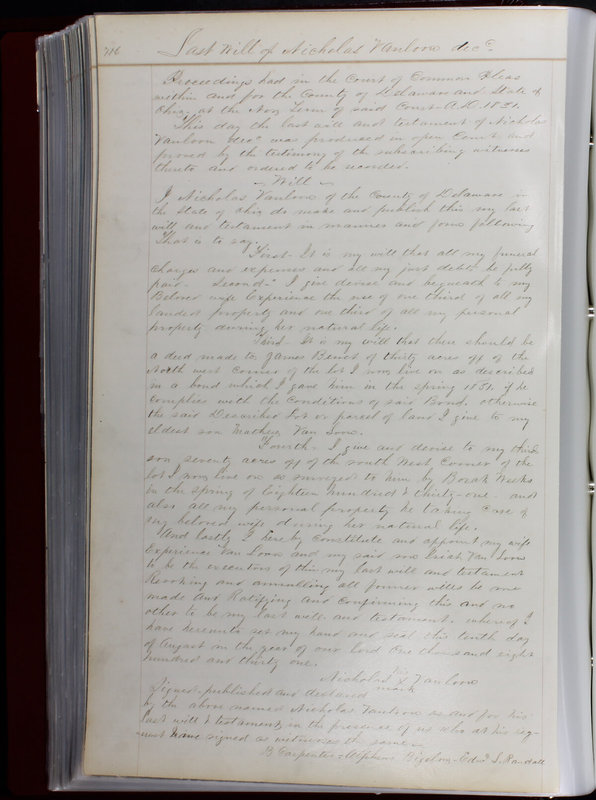 Last Will of Nicholas Vanloon decd.
Proceedings had in the Court of Common Pleas
within and for the County of Delaware and State of
Ohio, at the Nov Term of said Court A.D. 1831.
This day the last will and testament of Nicholas
Vanloon decd was produced in open Court and
proved by the testimony of the subscribing witnesses
thereto and ordered to be recorded.
- Will -
I, Nicholas Vanloon of the County of Delaware in
the State of Ohio, do make and publish this my last
will and testament in manner and form following
That is to say,
First- It is my will that all my funeral
charges and expenses and all my just debts be fully
paid. Second- I give devise and bequeath to my
Beloved wife Experience the use of one third of all my
landed property and one third of all my personal
property during her natural life.
Third- It is my will that there should be
a deed made to James Bennet of thirty acres off of the
North west Corner of the lot I now live on as described
in a bond which I gave him in the spring 1831. if he
complies with the Conditions of said Bond. otherwise
the said Described lot or parcel of land I give to my
eldest son Mathew Van Loon.
Fourth- I give and devise to my third
son seventy acres off of the south West Corner of the
lot I now live on as surveyed to him by Weeks
in the spring of Eighteen hundred & thirty-one and
also all my personal property he taking Care of
my beloved wife during her natural life.
And lastly I hereby constitute and appoint my wife
Experience Van Loon and my said son Van Loon
to be the executors of this my last will and testament
Revoking and annulling all former wills by me
made And Ratifying and Confirming this and no
other to be my last will and testament. whereof I
have hereunto set my hand and seal this tenth day
of August in the year of our lord One thousand eight
hundred and thirty one.
Nicholas his X mark Vanloon
Signed, published and declared
by the above named Nicholas Vanloon as and for his
last will & testament, in the presence of us who at his req-
uest have signed as witnesses the same
B Carpenter - Alpheus Bigelow - Edwd S. Randall